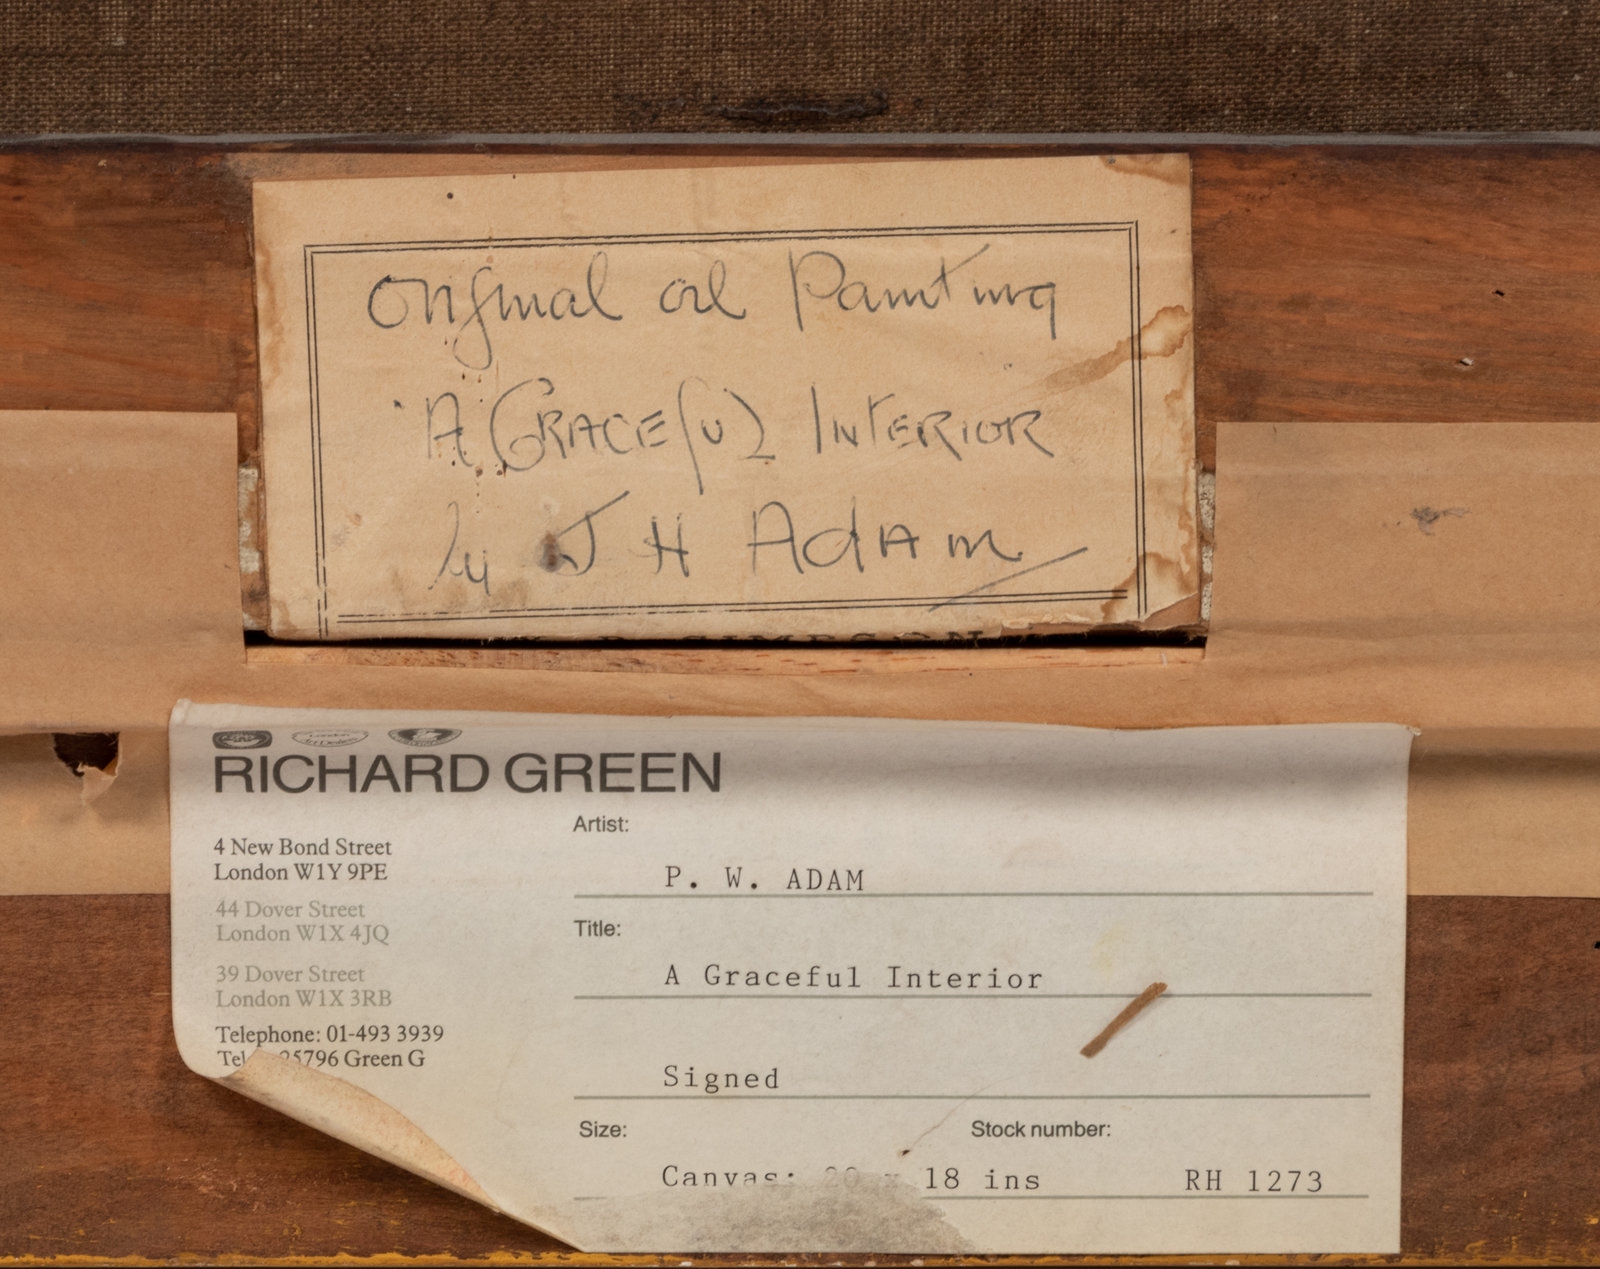 Original oil Painting
'A Graceful INTERIOR
by J H AdAm
SIMPSON
RICHARD GREEN
4 New Bond Street
London W1Y 9PE
44 Dover Street
London W1X 4JQ
39 Dover Street
London W1X 3RB
Telephone: 01-493 3939
25796 Green G
Artist:
P. W. ADAM
Title:
A Graceful Interior
Signed
Size:
Stock number:
Canvas: 20 x 18 ins
RH 1273